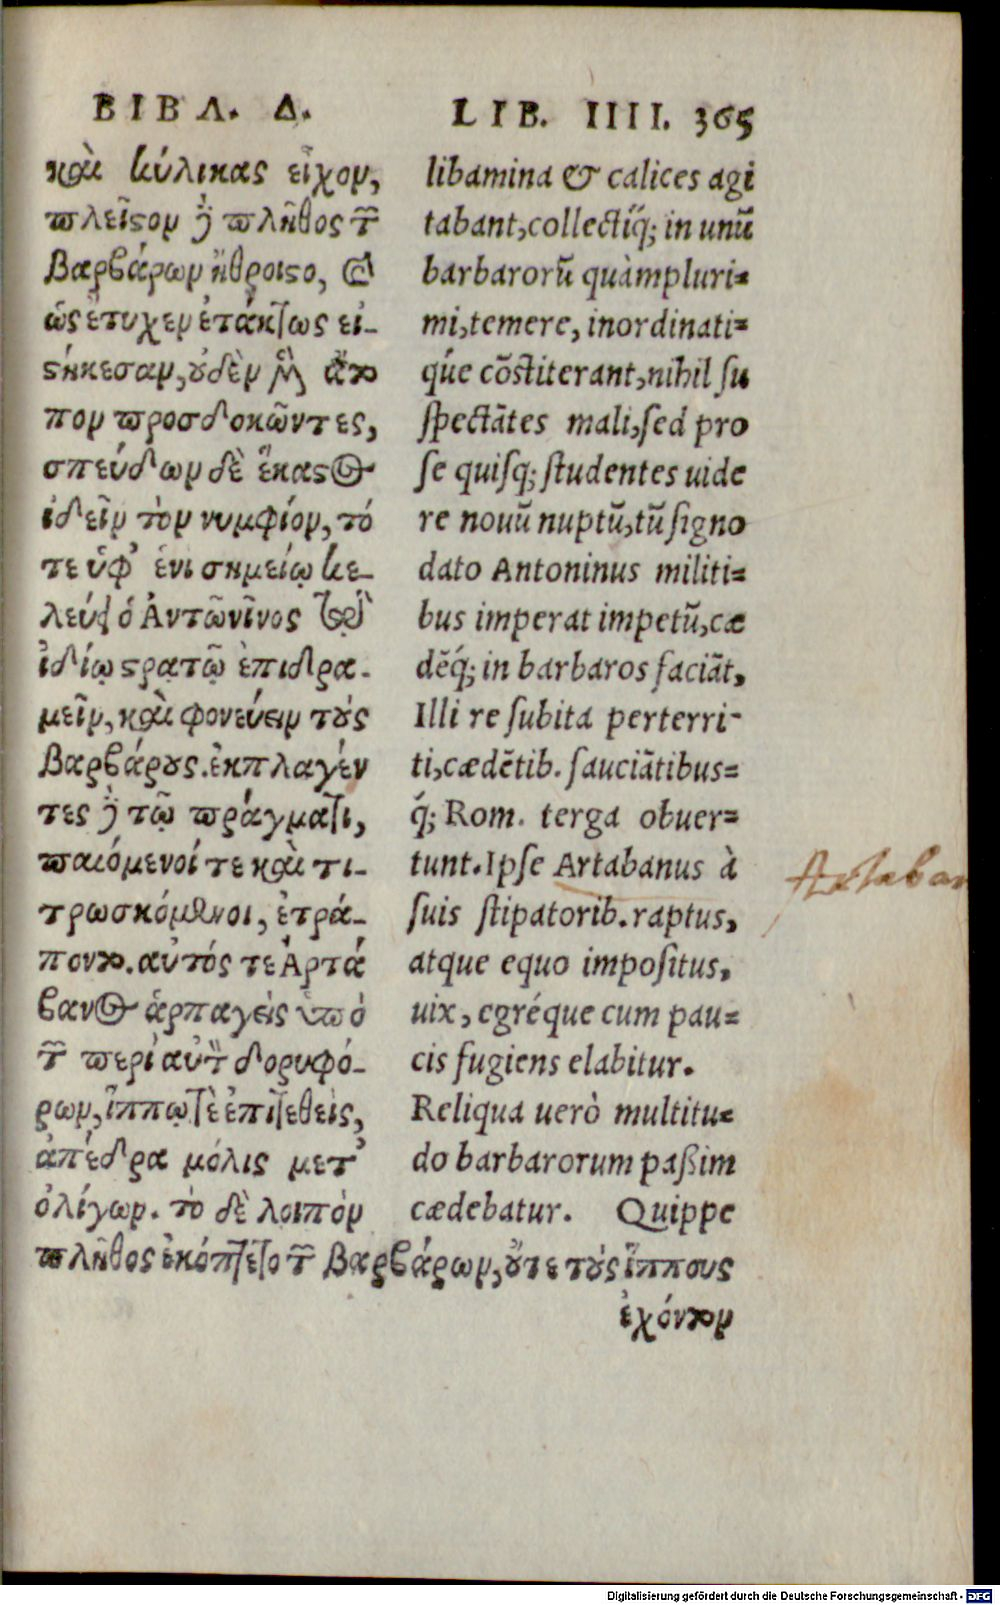 ΒΙΒΛ. Δ.
καὶ κύλικας εἶχον,
πλεῖστον δὲ πλῆθος τῶν
Βαρβάρων ἤθροιστο, καὶ
ὡς ἔτυχεν ἀτάκτως εἱ-
στήκεσαν, οὐδὲν μὲν ἄτο
πον προσδοκῶντες,
σπεύδων δὲ ἕκαστος
ἰδεῖν τὸν νυμφίον, τό
τε ὑφ' ἑνὶ σημείῳ κε-
λεύει ὁ Ἀντωνῖνος τῷ
ἰδίῳ στρατῷ ἐπιδρα-
μεῖν, καὶ φονεύειν τοὺς
Βαρβάρους. ἐκπλαγέν
τες δὲ τῷ πράγματι,
παιόμενοί τε καὶ τι-
τρωσκόμενοι, ἐτρά-
ποντο. αὐτός τε Ἀρτά
βανος ἁρπαγεὶς ὑπὸ
τῶν περὶ αὐτὸν δορυφό-
ρων, ἵππῳ τὲ ἐπιτεθεὶς,
ἀπέδρα μόλις μετ'
ὀλίγων. τὸ δὲ λοιπὸν
πλῆθος ἐκόπτετο τῶν Βαρβάρων, οὔτε τοὺς ἵππους
ἐχόντων
LIB. IIII. 365
libamina & calices agi
tabant, collectíq́; in unū
barbarorū quàmpluri=
mi, temere, inordinati=
q́ue cōstiterant, nihil su
spectātes mali, sed pro
se quisq; studentes uide
re nouū nuptū, tū signo
dato Antoninus militi=
bus imperat impetū, cæ
dēq́; in barbaros faciāt,
Illi re subita perterri-
ti, cædētib. sauciātibus=
q́; Rom. terga obuer=
tunt. Ipse Artabanus à
suis stipatorib. raptus,
atque equo impositus,
uix, egréque cum pau=
cis fugiens elabitur.
Reliqua uerò multitu=
do barbarorum paßim
cædebatur. Quippe
Artaban
Digitalisierung gefördert durch die Deutsche Forschungsgemeinschaft - DFG